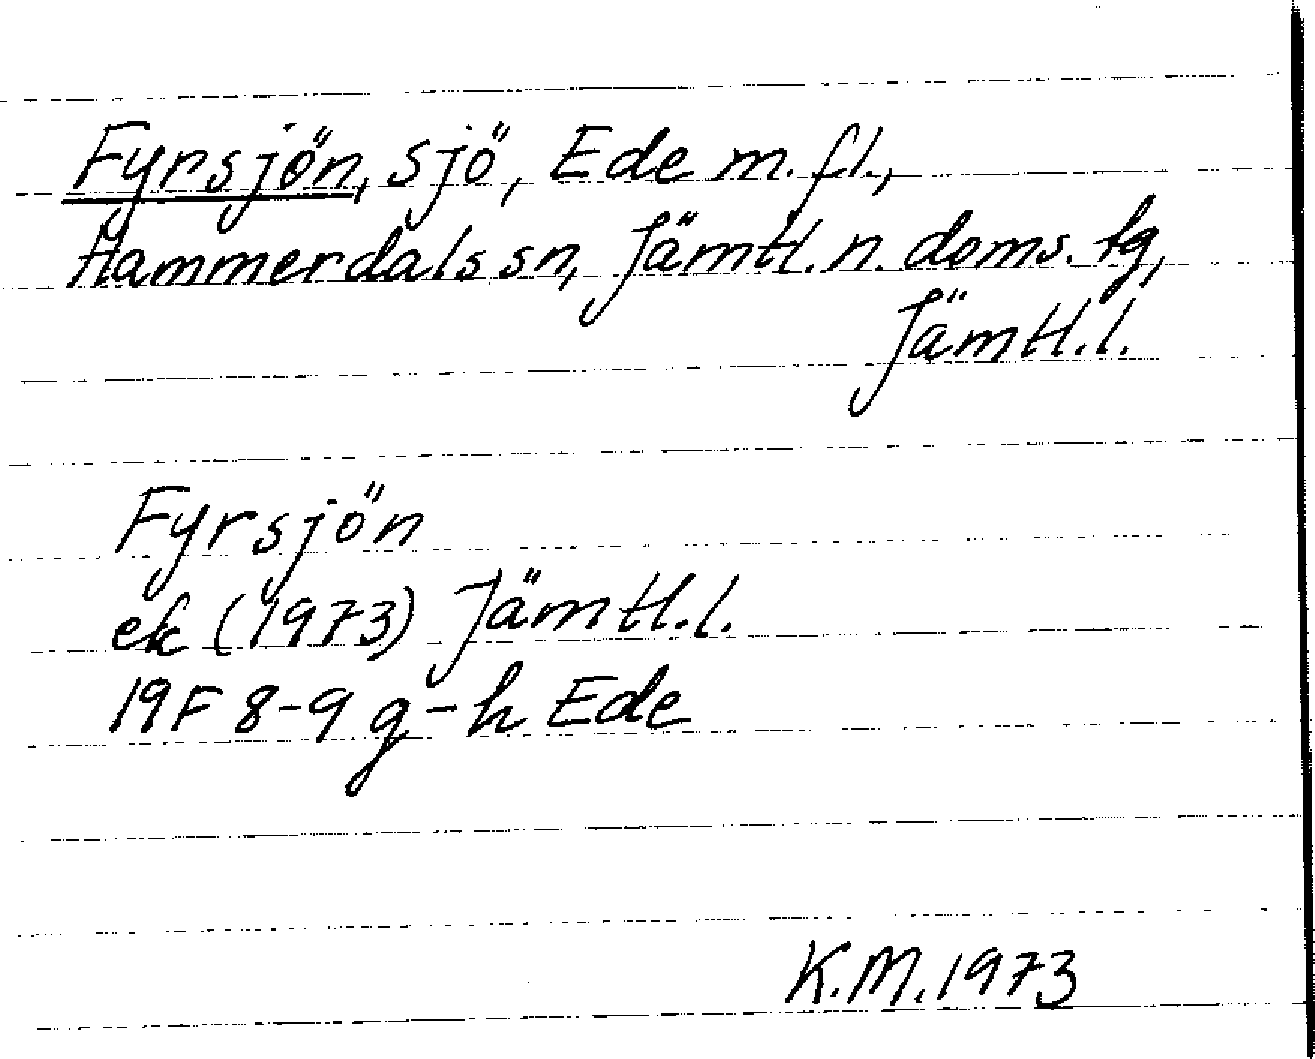 Fyrsjön, sjö, Ede m.fl.,
Hammerdals sn, Jämtl. n. doms. tg,
Jämtl. l.
Fyrsjön
ek (1973) Jämtl. l.
19F 8-9 g-h Ede
K.M. 1973